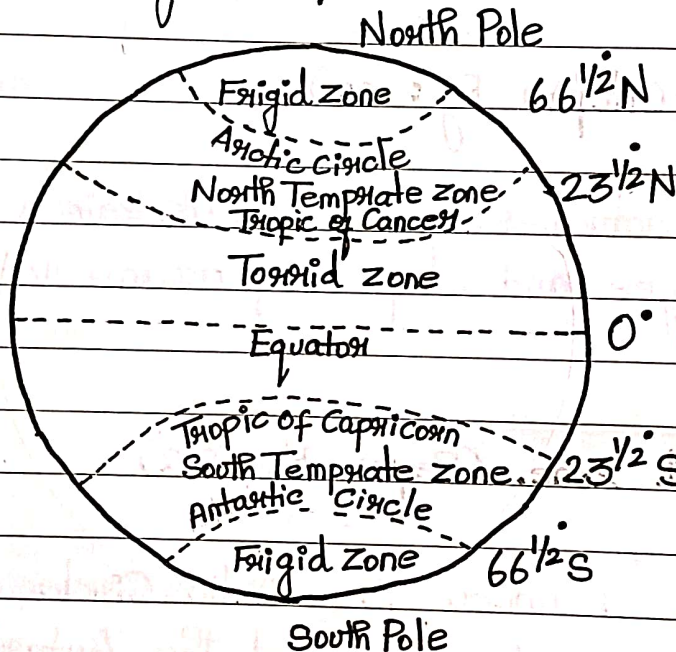 North Pole
Frigid zone 66 1/2° N
Arctic Circle
North Temprate zone 23 1/2° N
Tropic of Cancer
Torrid zone
0°
Equator
Tropic of Capricorn
South Temprate zone 23 1/2° S
Antartic Circle
Frigid Zone 66 1/2° S
South Pole